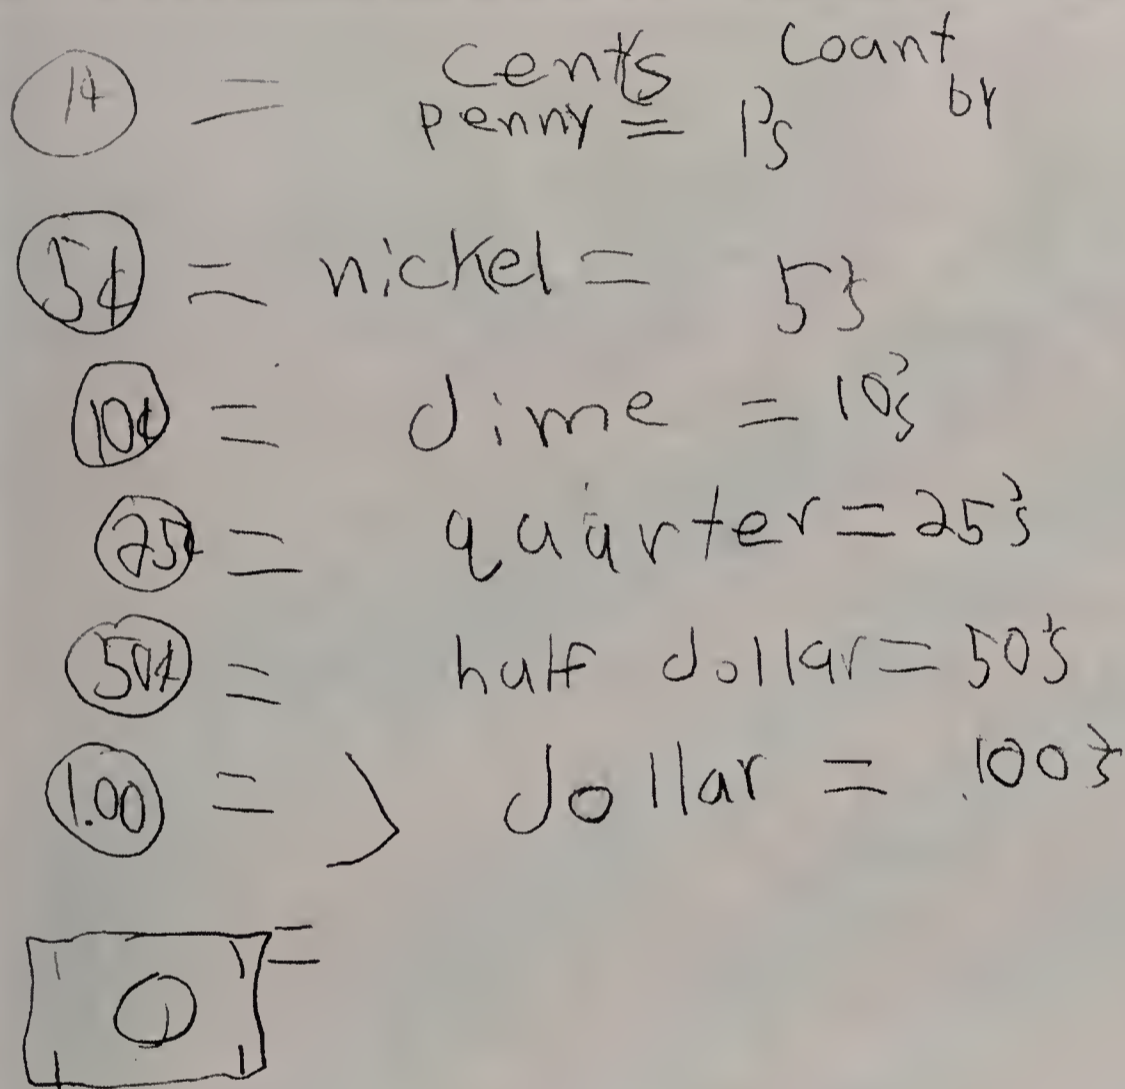 cents count
1¢ = penny = 1's by
5¢ = nickel = 5's
10¢ = dime = 10's
25¢ = quarter = 25's
50¢ = half dollar = 50's
1.00 = ) dollar = 100's
1 1
1 =
1 1